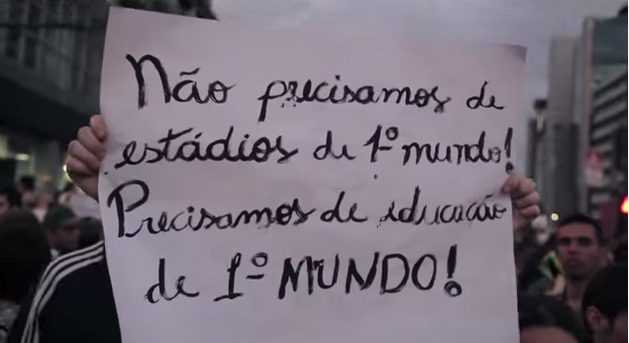 Não precisamos de
estádios de 1º mundo!
Precisamos de educação
de 1º MUNDO!